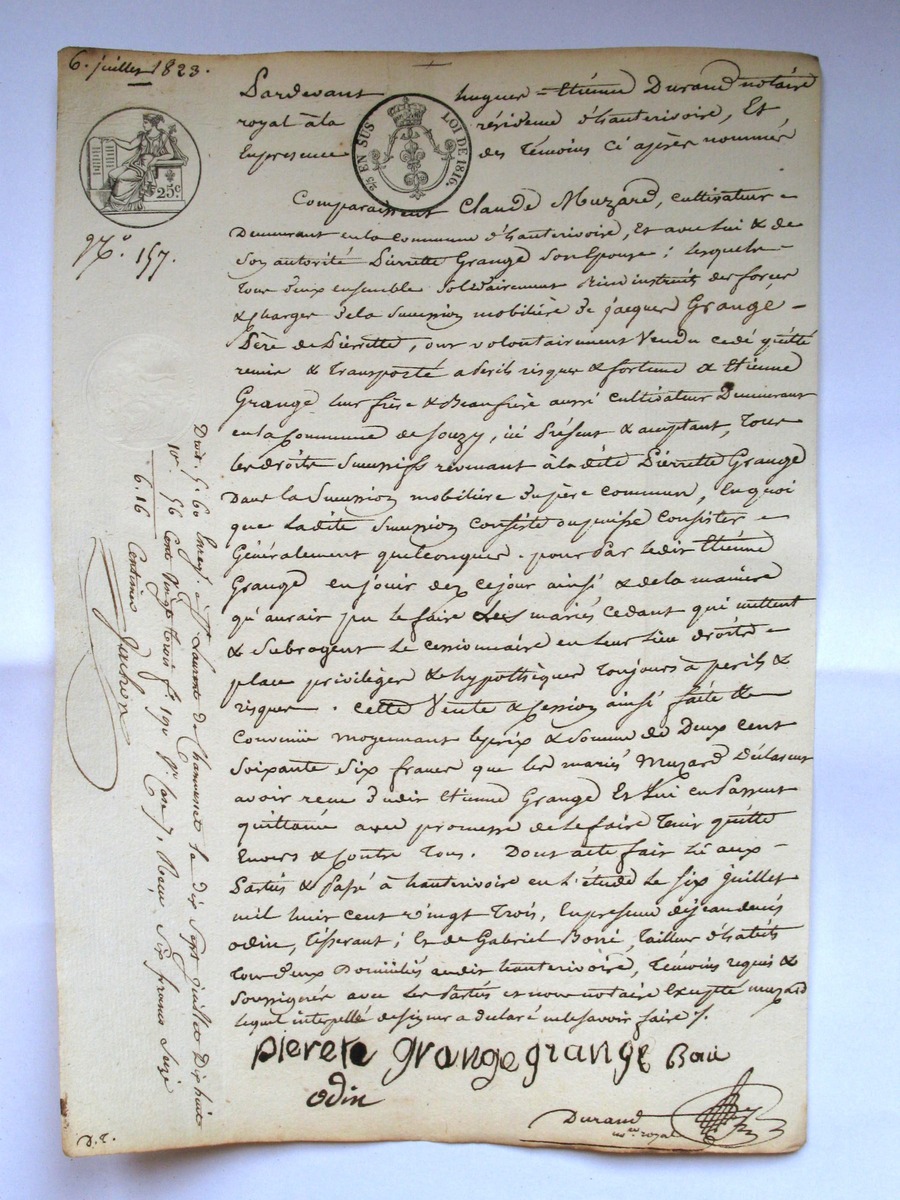 6. juillet 1823.
Pardevant hugues = Etienne Durand notaire
royal à la résidence d'hauterivoire, Et
En presence des témoins cï après nommés
25 EN SUS LOI DE 1816.
25c
No. 157.
Comparaissent Claude Muzard, cultivateur =
Demeurant en la commune d'hauterivoire, Et avec lui & de
son autorité Pierrette Grange son Epouse; lesquels =
tous deux ensemble solidairement bien instruits des forces
& charges de la succession mobilière de jacques Grange =
Père de Pierrette, ont volontairement Vendu cedé quitté
remis & transporté a perils risques & fortune a Etienne
Grange leur frère & Beaufrère aussi cultivateur Demeurant
en la Commune de Souzy, ici présent & aceptant, tous
les droits successifs revenant à la dite Pierrette Grange
Dans la Succession mobilière du père commun, En quoi
que ladite succession consiste ou puisse consister =
Généralement quelconques. pour Par ledit Etienne
Grange en jouir dez ce jour ainsi & de la manière
qu'aurait pu le faire les mariés cedant qui mettent
& subrogent le cessionnaire en leur lieu droits =
place privilèges & hypothèques toujours à perils &
risques. Cette Vente & cession ainsi faite &
Convenüe moyennant le prix & somme de Deux cent
soixante six francs que les mariés Muzard Déclarent
avoir reçu dudit Etienne Grange Et lui en Passent
quittance avec promesse de le faire tenir quitte
Envers & Contre tous. Dont acte fait Lû aux =
Parties & Passé à hauterivoire en l'étude le six juillet
mil huit cent vingt trois, En presence de jean denis
odin, tisserant; Et de Gabriel Boué, tailleur d'habits
tous deux Domiciliés audit hauterivoire, témoins requis &
Soussignés avec les Parties et nous notaire Excepté muzard
lequel interpellé de signer a déclaré ne le savoir faire /.
pierete grange grange Boué
odin
Durand
no.re royal
D.t. 5. 60 Enreg. à St. Laurent de Chamousset le dix Sept juillet Dix huit
10e. 56 Cent Vingt trois fo 190 Vo Case 7, Reçu Six francs Seize
6. 16 Centimes
D.t.